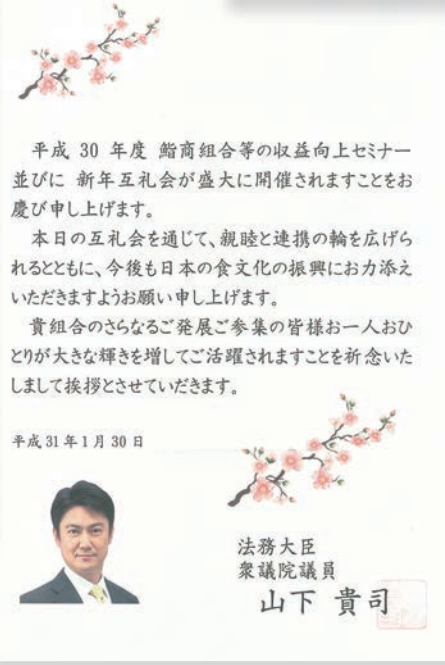 平成 30 年度 鮨商組合等の収益向上セミナー
並びに 新年互礼会が盛大に開催されますことをお
慶び申し上げます。
本日の互礼会を通じて、親睦と連携の輪を広げら
れるとともに、今後も日本の食文化の振興にお力添え
いただきますようお願い申し上げます。
貴組合のさらなるご発展ご参集の皆様お一人おひ
とりが大きな輝きを増してご活躍されますことを祈念いた
しまして挨拶とさせていだきます。
平成 31 年 1 月 30 日
法務大臣
衆議院議員
山下 貴司